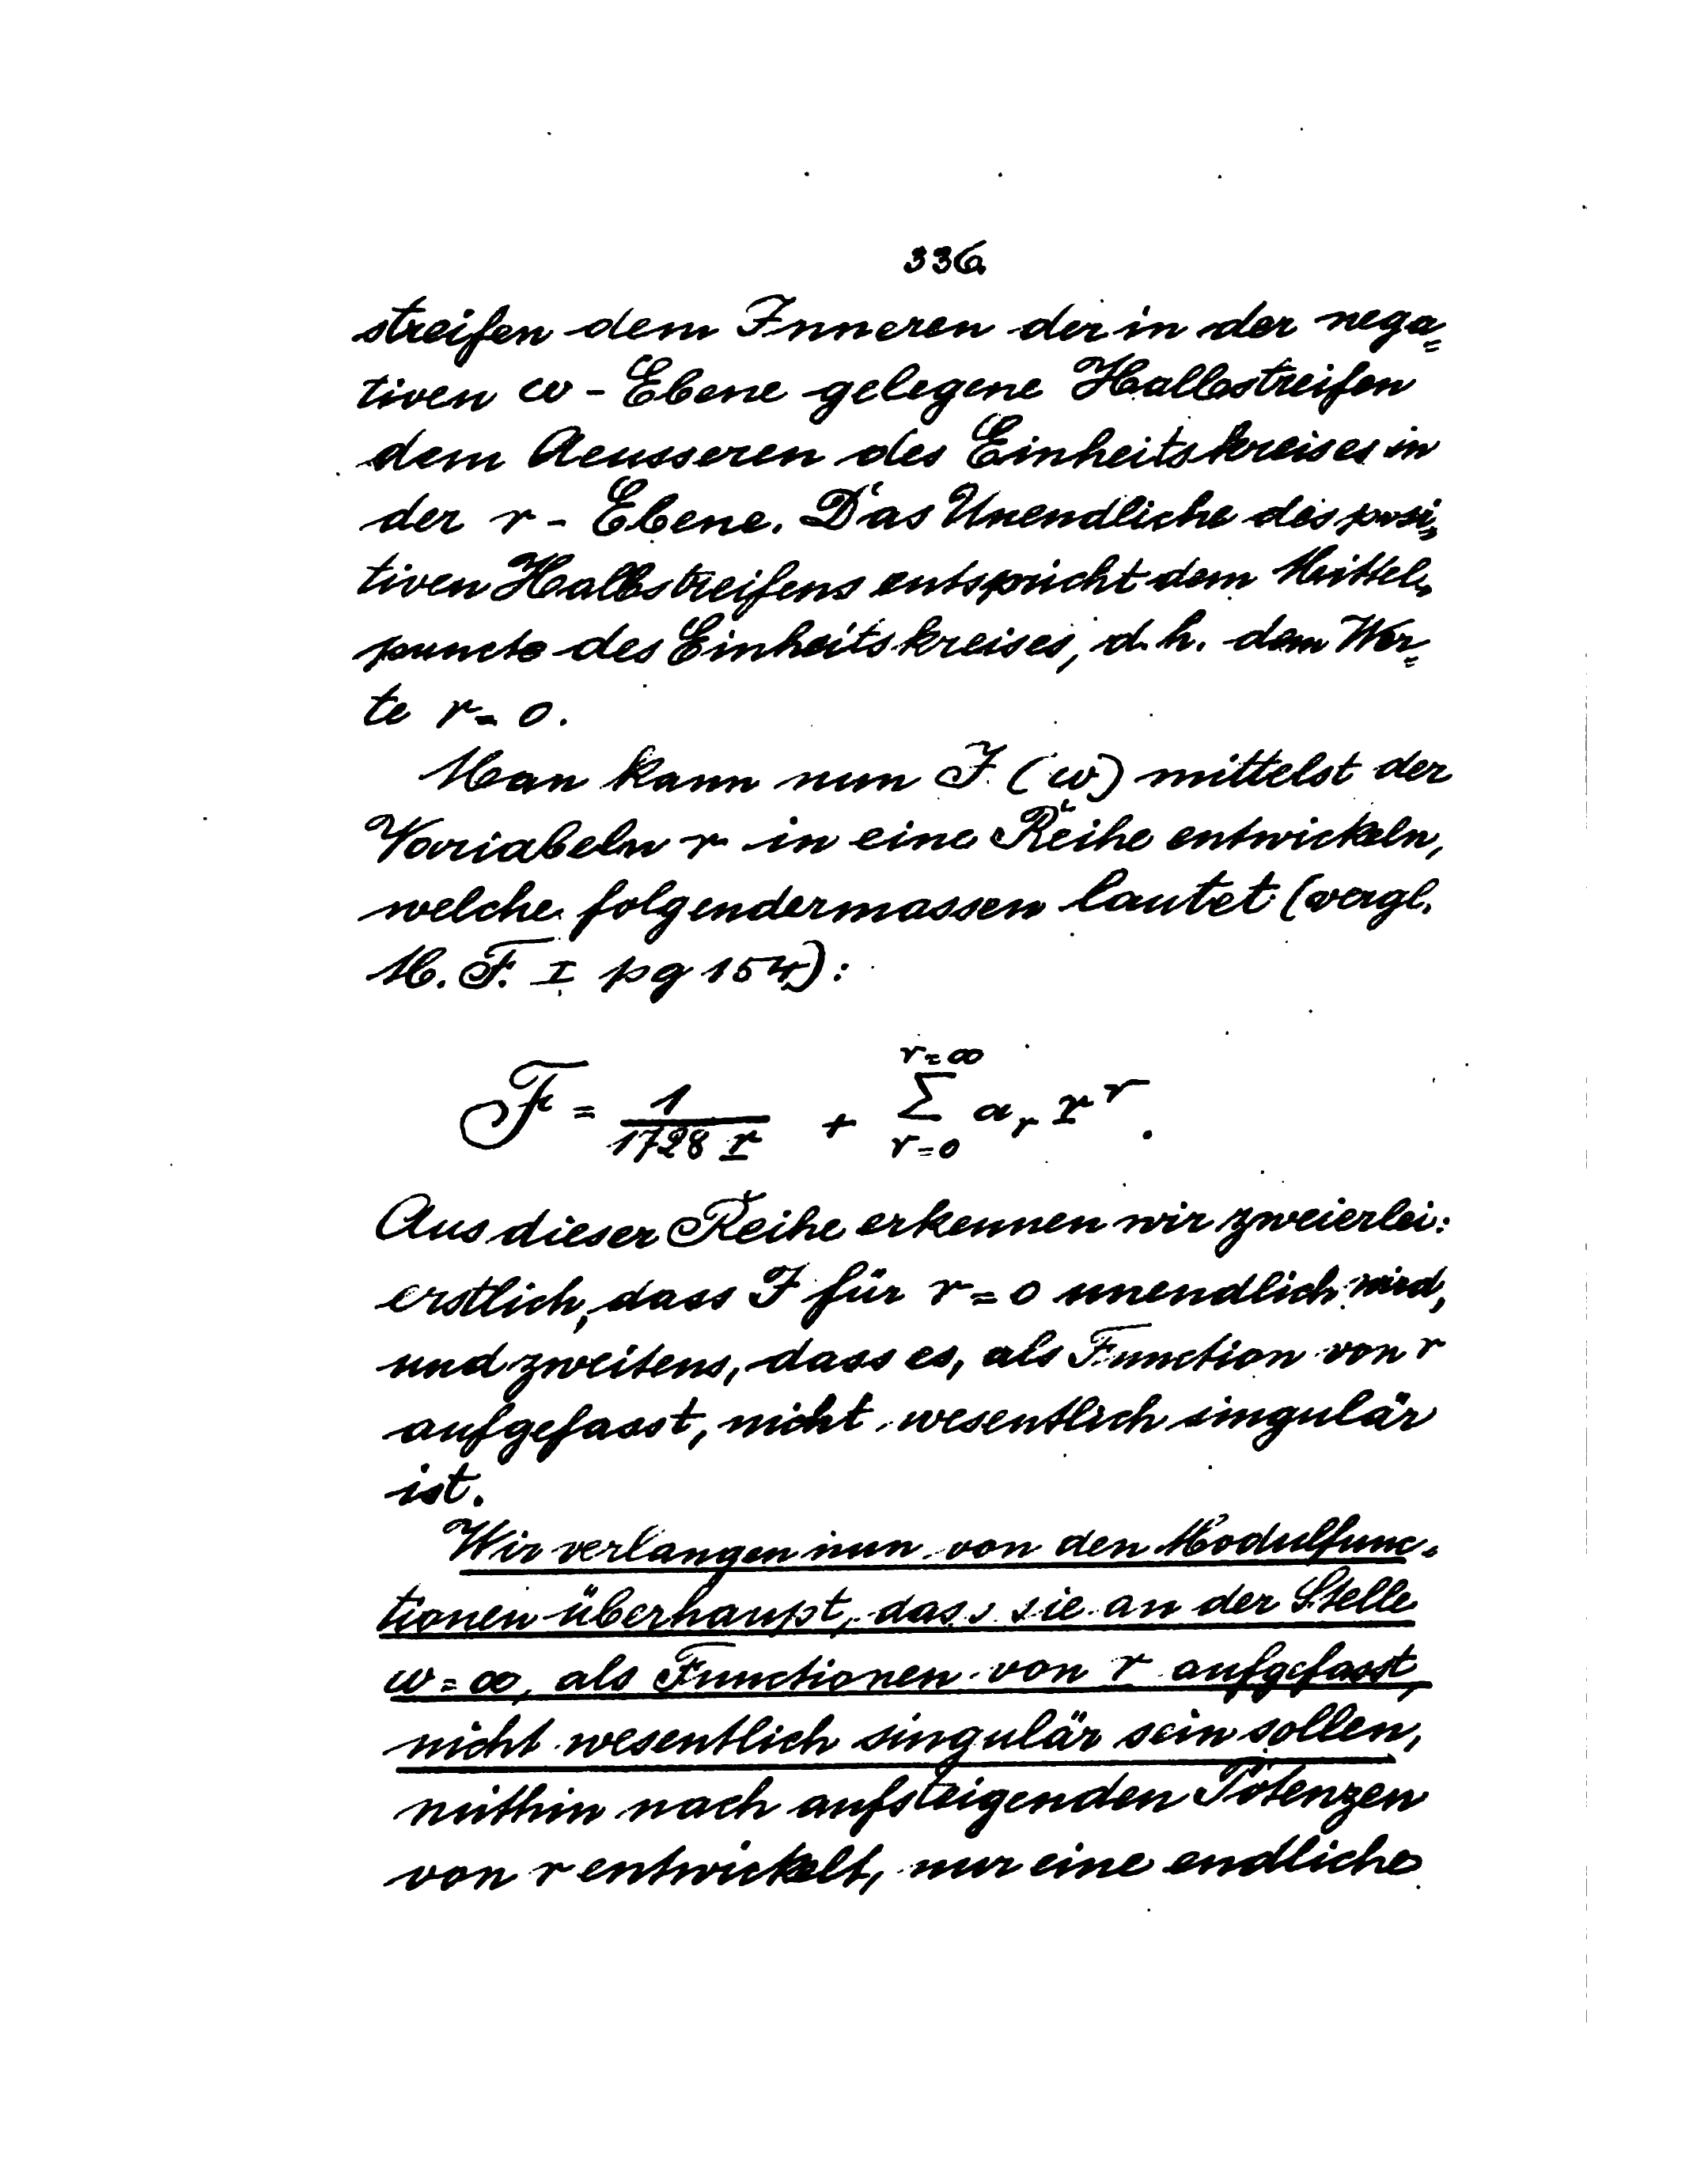 336
streifen dem Inneren der in der nega=
tiven ω-Ebene gelegene Halbstreifen
dem Aeusseren des Einheitskreises in
der r-Ebene. Das Unendliche des posi=
tiven Halbstreifens entspricht dem Mittel=
puncte des Einheitskreises, d.h. dem Wer=
te r=0.
Man kann nun J(ω) mittelst der
Variabeln r in eine Reihe entwickeln,
welche folgendermassen lautet (vergl.
M.F. I pg 154):
J = 1/(1728 r) + Σ_{r=0}^{r=∞} a_r r^r.
Aus dieser Reihe erkennen wir zweierlei:
erstlich, dass J für r=0 unendlich wird,
und zweitens, dass es, als Function von r
aufgefasst, nicht wesentlich singulär
ist.
Wir verlangen nun von den Modulfunc=
tionen überhaupt, dass sie an der Stelle
ω=∞, als Functionen von r aufgefasst,
nicht wesentlich singulär sein sollen,
mithin nach aufsteigenden Potenzen
von r entwickelt, nur eine endliche